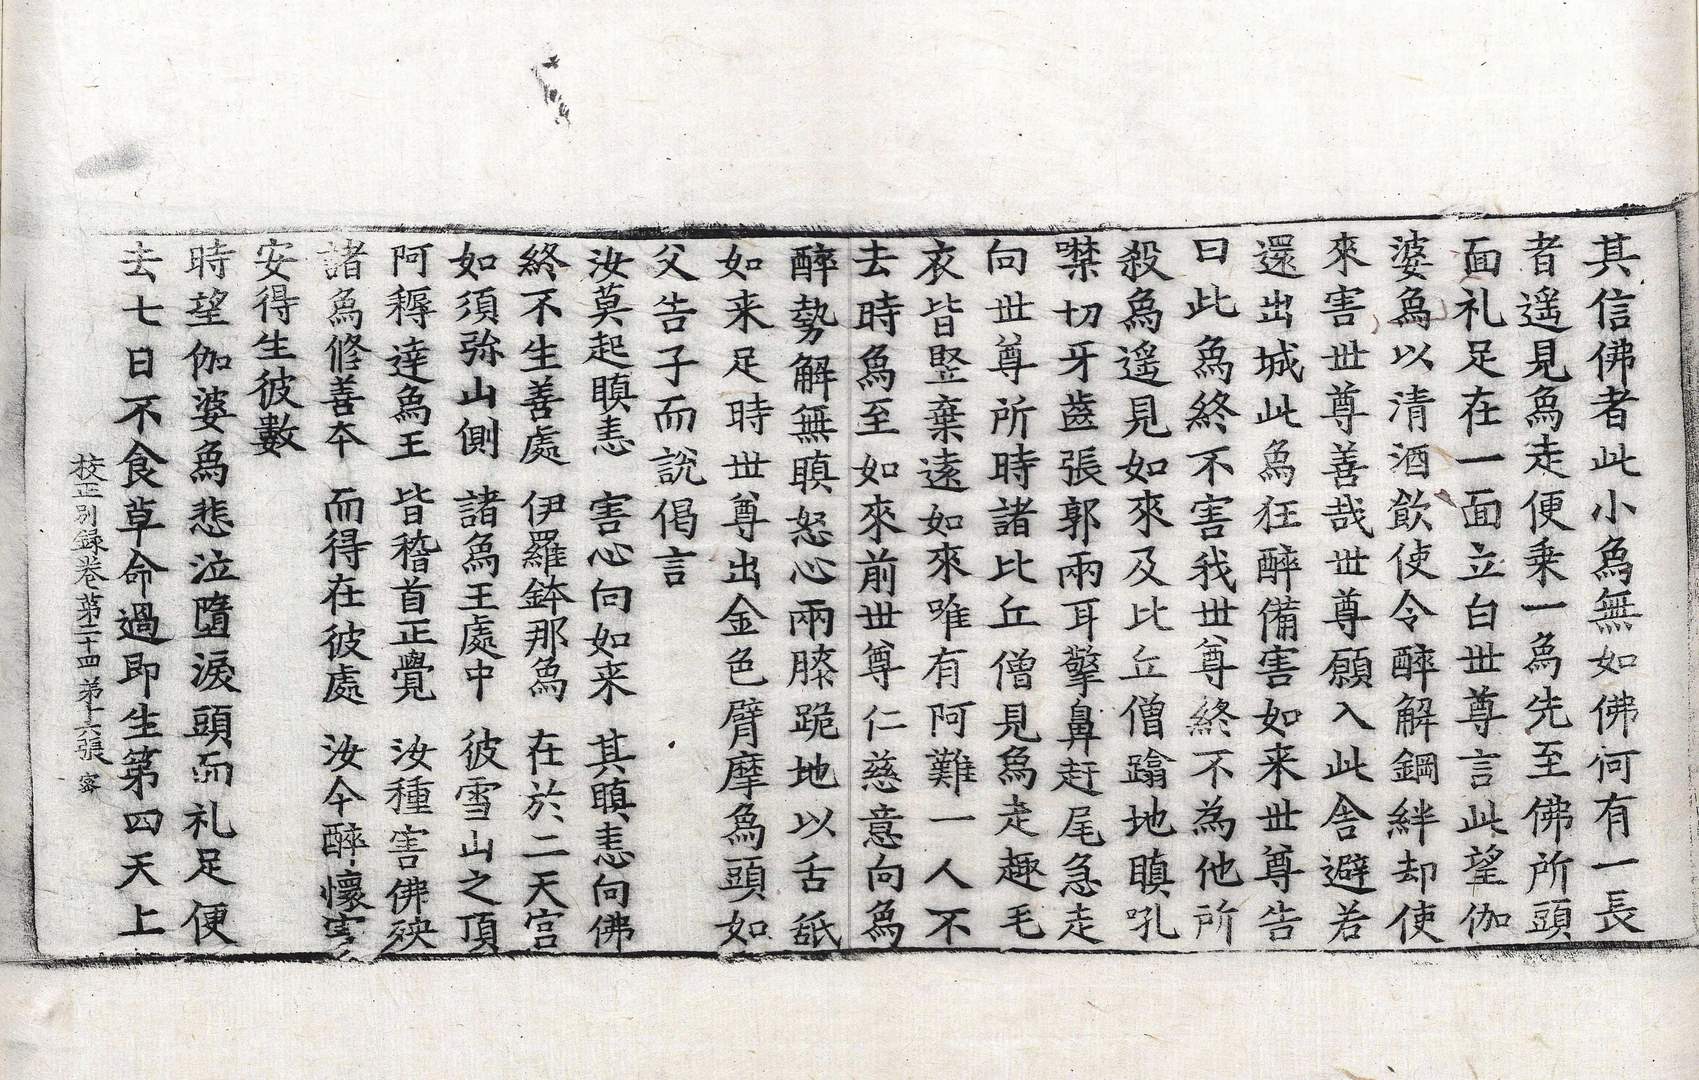 其信佛者此小為無如佛何有一長
者遥見為走便乗一為先至佛所頭
面礼足在一面立白世尊言此望伽
婆為以清酒飲使令醉解鋼絆却使
來害世尊善哉世尊願入此舎避若
還出城此為狂醉備害如来世尊告
曰此為終不害我世尊終不為他所
殺為遥見如來及比丘僧蹹地瞋吼
噤切牙齒張郭兩耳擎鼻赶尾急走
向世尊所時諸比丘僧見為走趣毛
衣皆竪棄遠如來唯有阿難一人不
去時為至如來前世尊仁慈意向為
醉勢解無瞋怒心兩膝跪地以舌舐
如来足時世尊出金色臂摩為頭如
父告子而說偈言
汝莫起瞋恚　害心向如来　其瞋恚向佛
終不生善處　伊羅鉢那為　在於二天宫
如須弥山側　諸為王處中　彼雪山之頂
阿耨達為王　皆稽首正覺　汝種害佛殃
諸為修善夲　而得在彼處　汝今醉懷害
安得生彼數
時望伽婆為悲泣墮淚頭面礼足便
去七日不食草命過即生第四天上
校正別録卷第二十四第十六張　宻